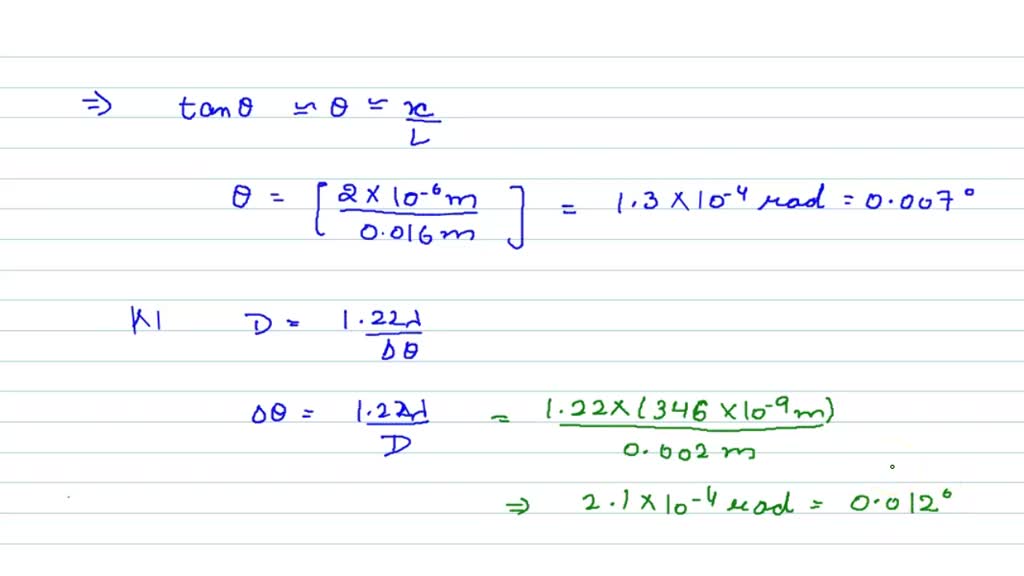 ⇒ tanθ ≃ θ ≃ x/L
θ = [2 × 10⁻⁶ m / 0.016 m] = 1.3 × 10⁻⁴ rad = 0.007°
D = 1.22λ/Δθ
Δθ = 1.22λ/D = 1.22 × (346 × 10⁻⁹ m) / 0.002 m
⇒ 2.1 × 10⁻⁴ rad = 0.012°